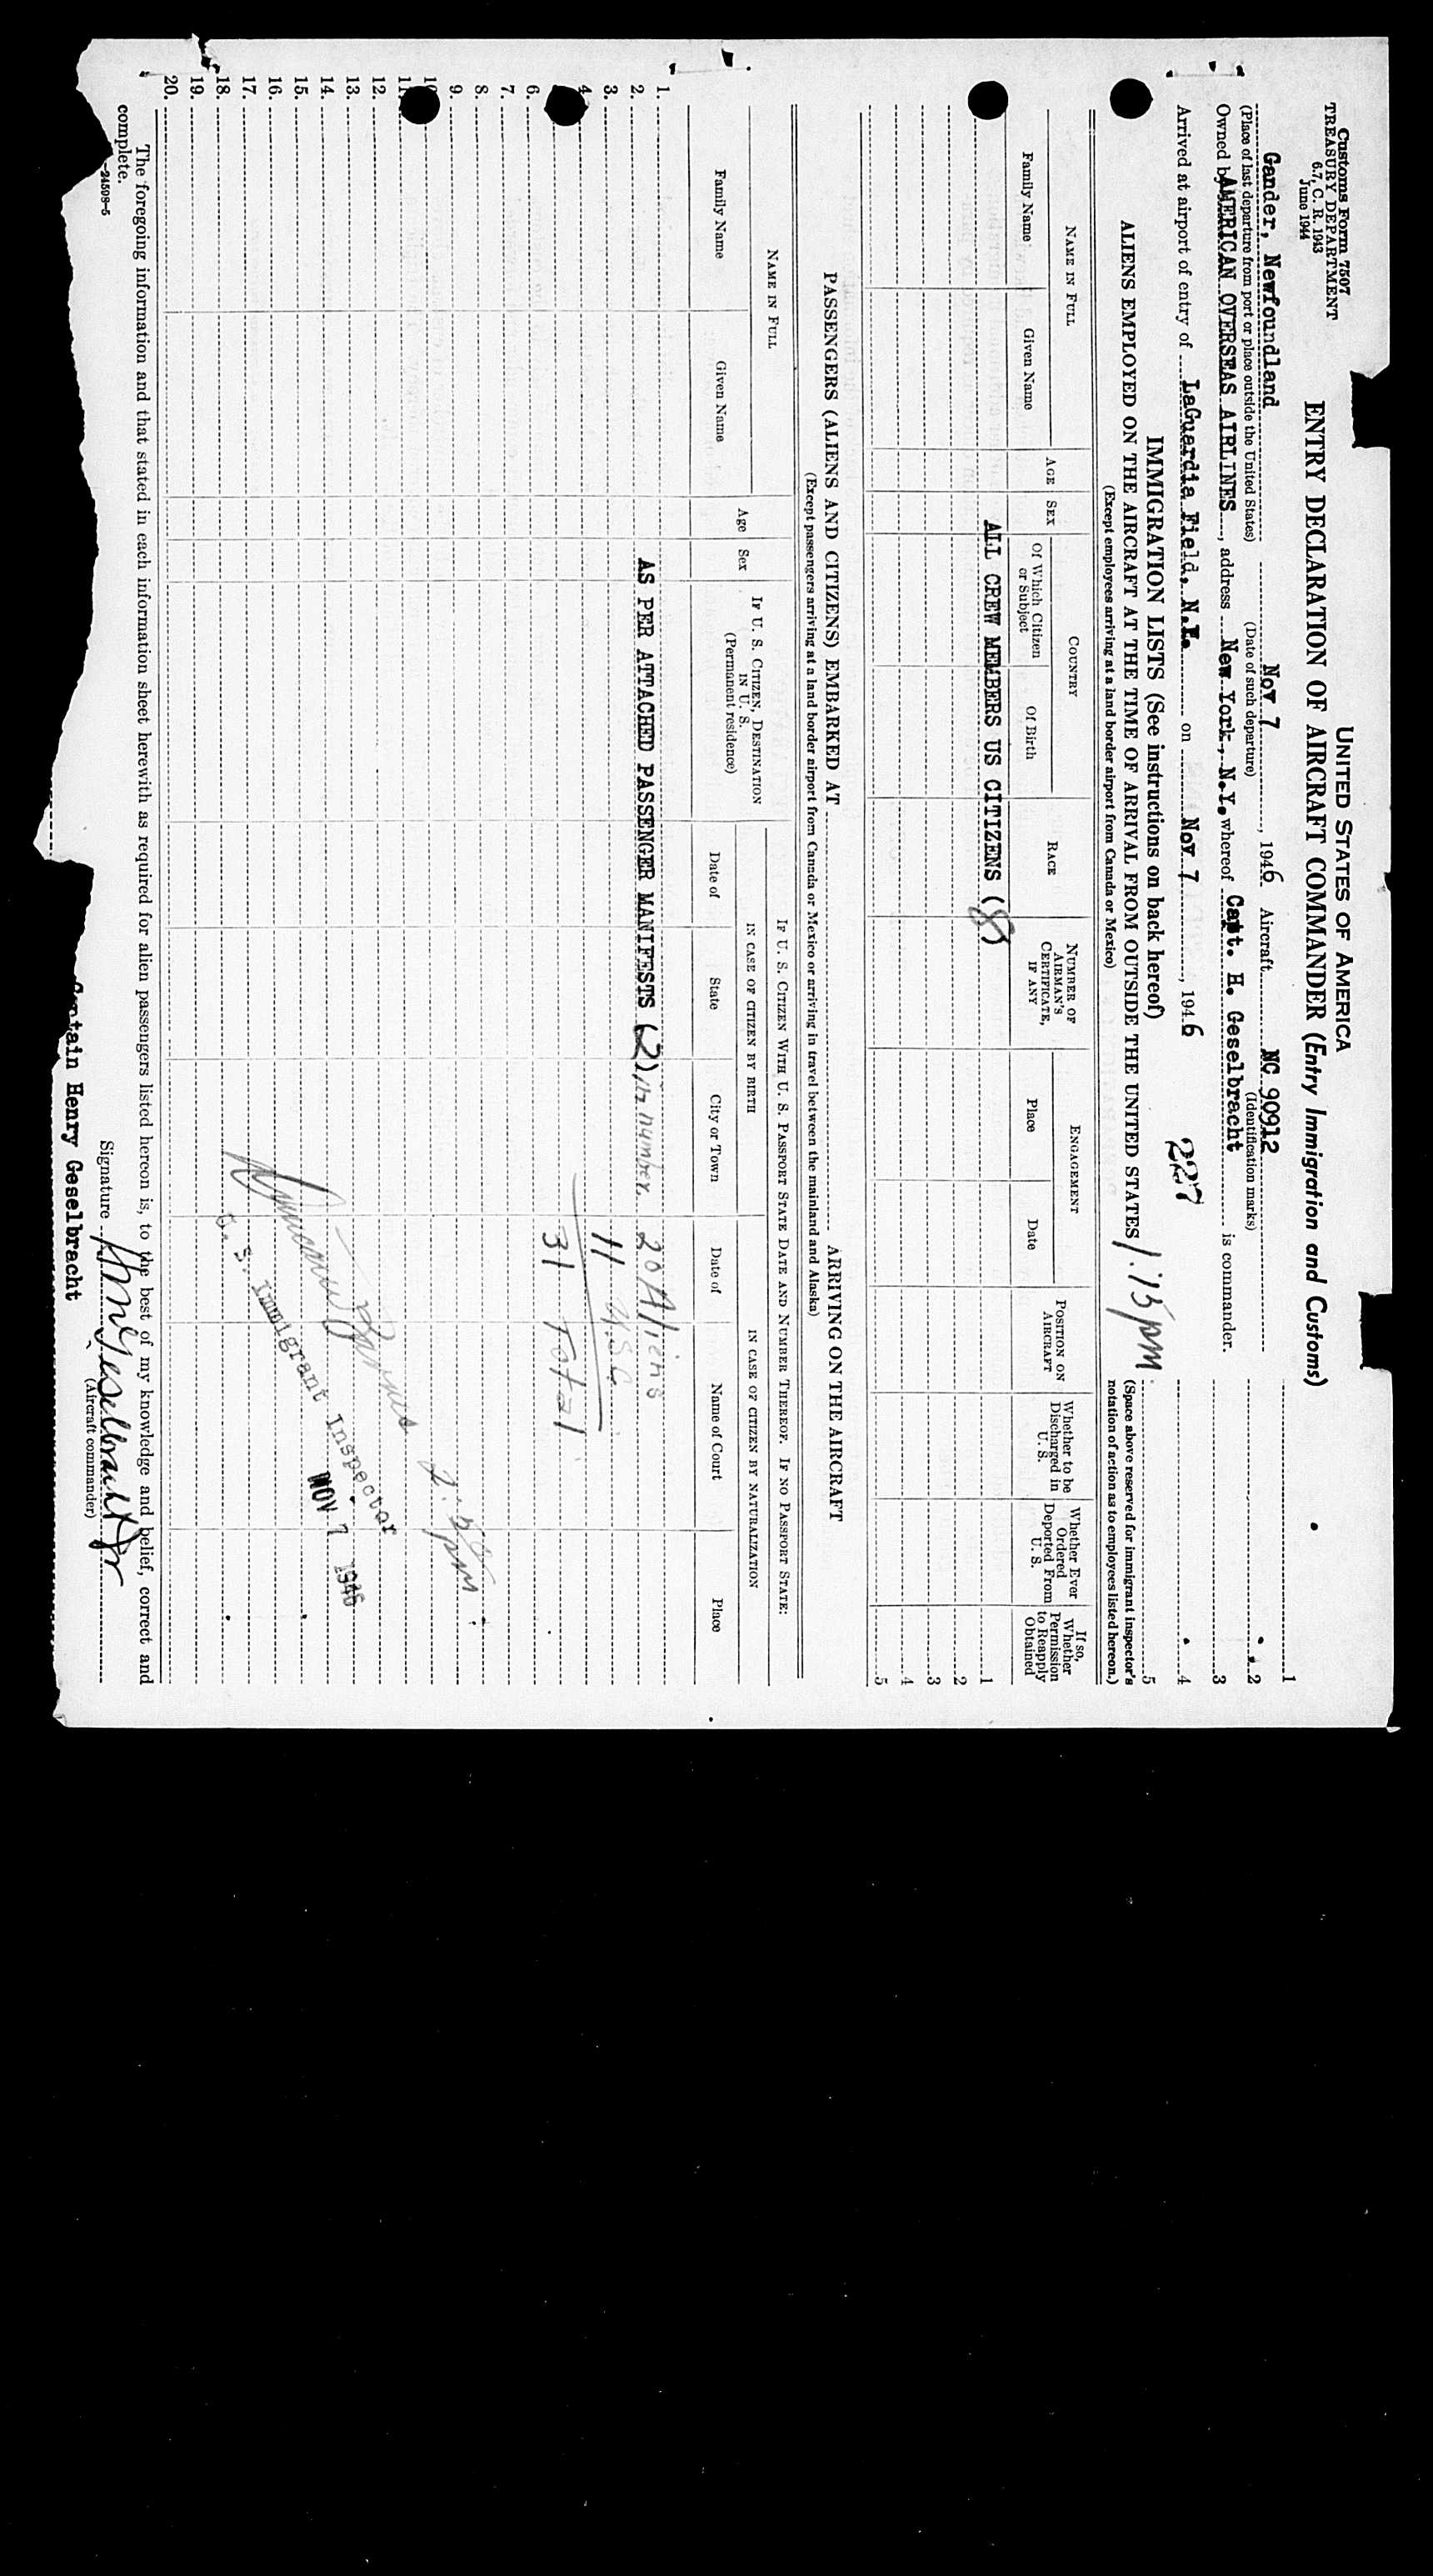 Customs Form 7507
TREASURY DEPARTMENT
6.7, C. R. 1943
June 1944
UNITED STATES OF AMERICA
ENTRY DECLARATION OF AIRCRAFT COMMANDER (Entry Immigration and Customs)
Gander, Newfoundland Nov 7, 1946 Aircraft NC 90912
(Place of last departure from port or place outside the United States) (Date of such departure) (Identification marks)
Owned by AMERICAN OVERSEAS AIRLINES, address New York, N.Y. whereof Capt. H. Geselbracht is commander.
Arrived at airport of entry of LaGuardia Field, N.Y. on Nov 7, 1946
227
1
2
3
4
5
IMMIGRATION LISTS (See instructions on back hereof)
ALIENS EMPLOYED ON THE AIRCRAFT AT THE TIME OF ARRIVAL FROM OUTSIDE THE UNITED STATES
(Except employees arriving at a land border airport from Canada or Mexico)
(Space above reserved for immigrant inspector's
notation of action as to employees listed hereon.)
NAME IN FULL
Family Name Given Name
AGE
SEX
COUNTRY
Of Which Citizen or Subject
Of Birth
RACE
NUMBER OF AIRMAN'S CERTIFICATE, IF ANY
ENGAGEMENT
Place Date
POSITION ON AIRCRAFT
Whether to be Discharged in U. S.
Whether Ever Ordered Deported From U. S.
If so, Whether Permission to Reapply Obtained
ALL CREW MEMBERS US CITIZENS (8)
1
2
3
4
5
PASSENGERS (ALIENS AND CITIZENS) EMBARKED AT ARRIVING ON THE AIRCRAFT
(Except passengers arriving at a land border airport from Canada or Mexico or arriving in travel between the mainland and Alaska)
NAME IN FULL
Family Name Given Name
Age
Sex
IF U. S. CITIZEN, DESTINATION IN U. S.
(Permanent residence)
IF U. S. CITIZEN WITH U. S. PASSPORT STATE DATE AND NUMBER THEREOF. IF NO PASSPORT STATE:
IN CASE OF CITIZEN BY BIRTH
Date of State City or Town
IN CASE OF CITIZEN BY NATURALIZATION
Date of Name of Court Place
1.
2. AS PER ATTACHED PASSENGER MANIFESTS (2) in number. 20 Aliens
3. 11 USC
4.
31 Total
6.
7.
8.
9.
10
11
12.
13.
14.
15.
16.
17.
18.
19.
20.
U. S. Immigrant Inspector
NOV 7 1946
The foregoing information and that stated in each information sheet herewith as required for alien passengers listed hereon is, to the best of my knowledge and belief, correct and
complete.
24508-5
Signature H Geselbracht Jr
(Aircraft commander)
Captain Henry Geselbracht